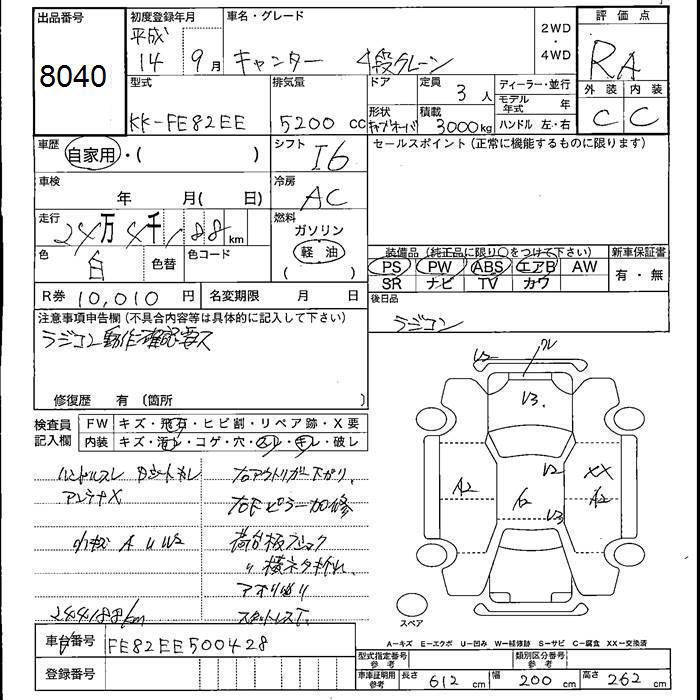 出品番号
8040
初度登録年月
平成
14 9月
車名・グレード
キャンター 4段クレーン
2WD
4WD
評価点
RA
型式
KK-FE82EE
排気量
5200 cc
ドア
定員
3人
形状
キャブオーバ
積載
3000kg
ディーラー・並行
モデル年式 年
ハンドル 左・右
外装 内装
C C
車歴
自家用・( )
シフト
I6
セールスポイント (正常に機能するものに限ります)
車検
年 月( 日)
冷房
AC
走行
24万4千188km
燃料
ガソリン
軽油
( )
色
白
色替
色コード
装備品 (純正品に限り○をつけて下さい)
PS PW ABS エアB AW
SR ナビ TV カワ
新車保証書
有・無
R券 10,010円
名変期限 月 日
後日品
ラジコン
注意事項申告欄 (不具合内容等は具体的に記入して下さい)
ラジコン動作確認要ス
修復歴 有 (箇所 )
検査員
記入欄
FW キズ・飛石・ヒビ割・リペア跡・X要
内装 キズ・汚レ・コゲ・穴・スレ・キレ・破レ
ハンドルスレ Dシートキレ
アンテナX
小板 A U W2
244188km
右アウトリガー下カリ
右Fピラー加修
荷台板
〃 横ネタ
アオリ
スタットレスT.
U2
ワレ
V3.
A2
V2
V3
XX
A2
スペア
A-キズ E-エクボ U-凹み W-補修跡 S-サビ C-腐食 XX-交換済
車台番号
FE82EE500428
登録番号
型式指定番号
参考
類別区分番号
参考
車庫証明用
参考
長さ 612 cm
幅 200 cm
高さ 262 cm